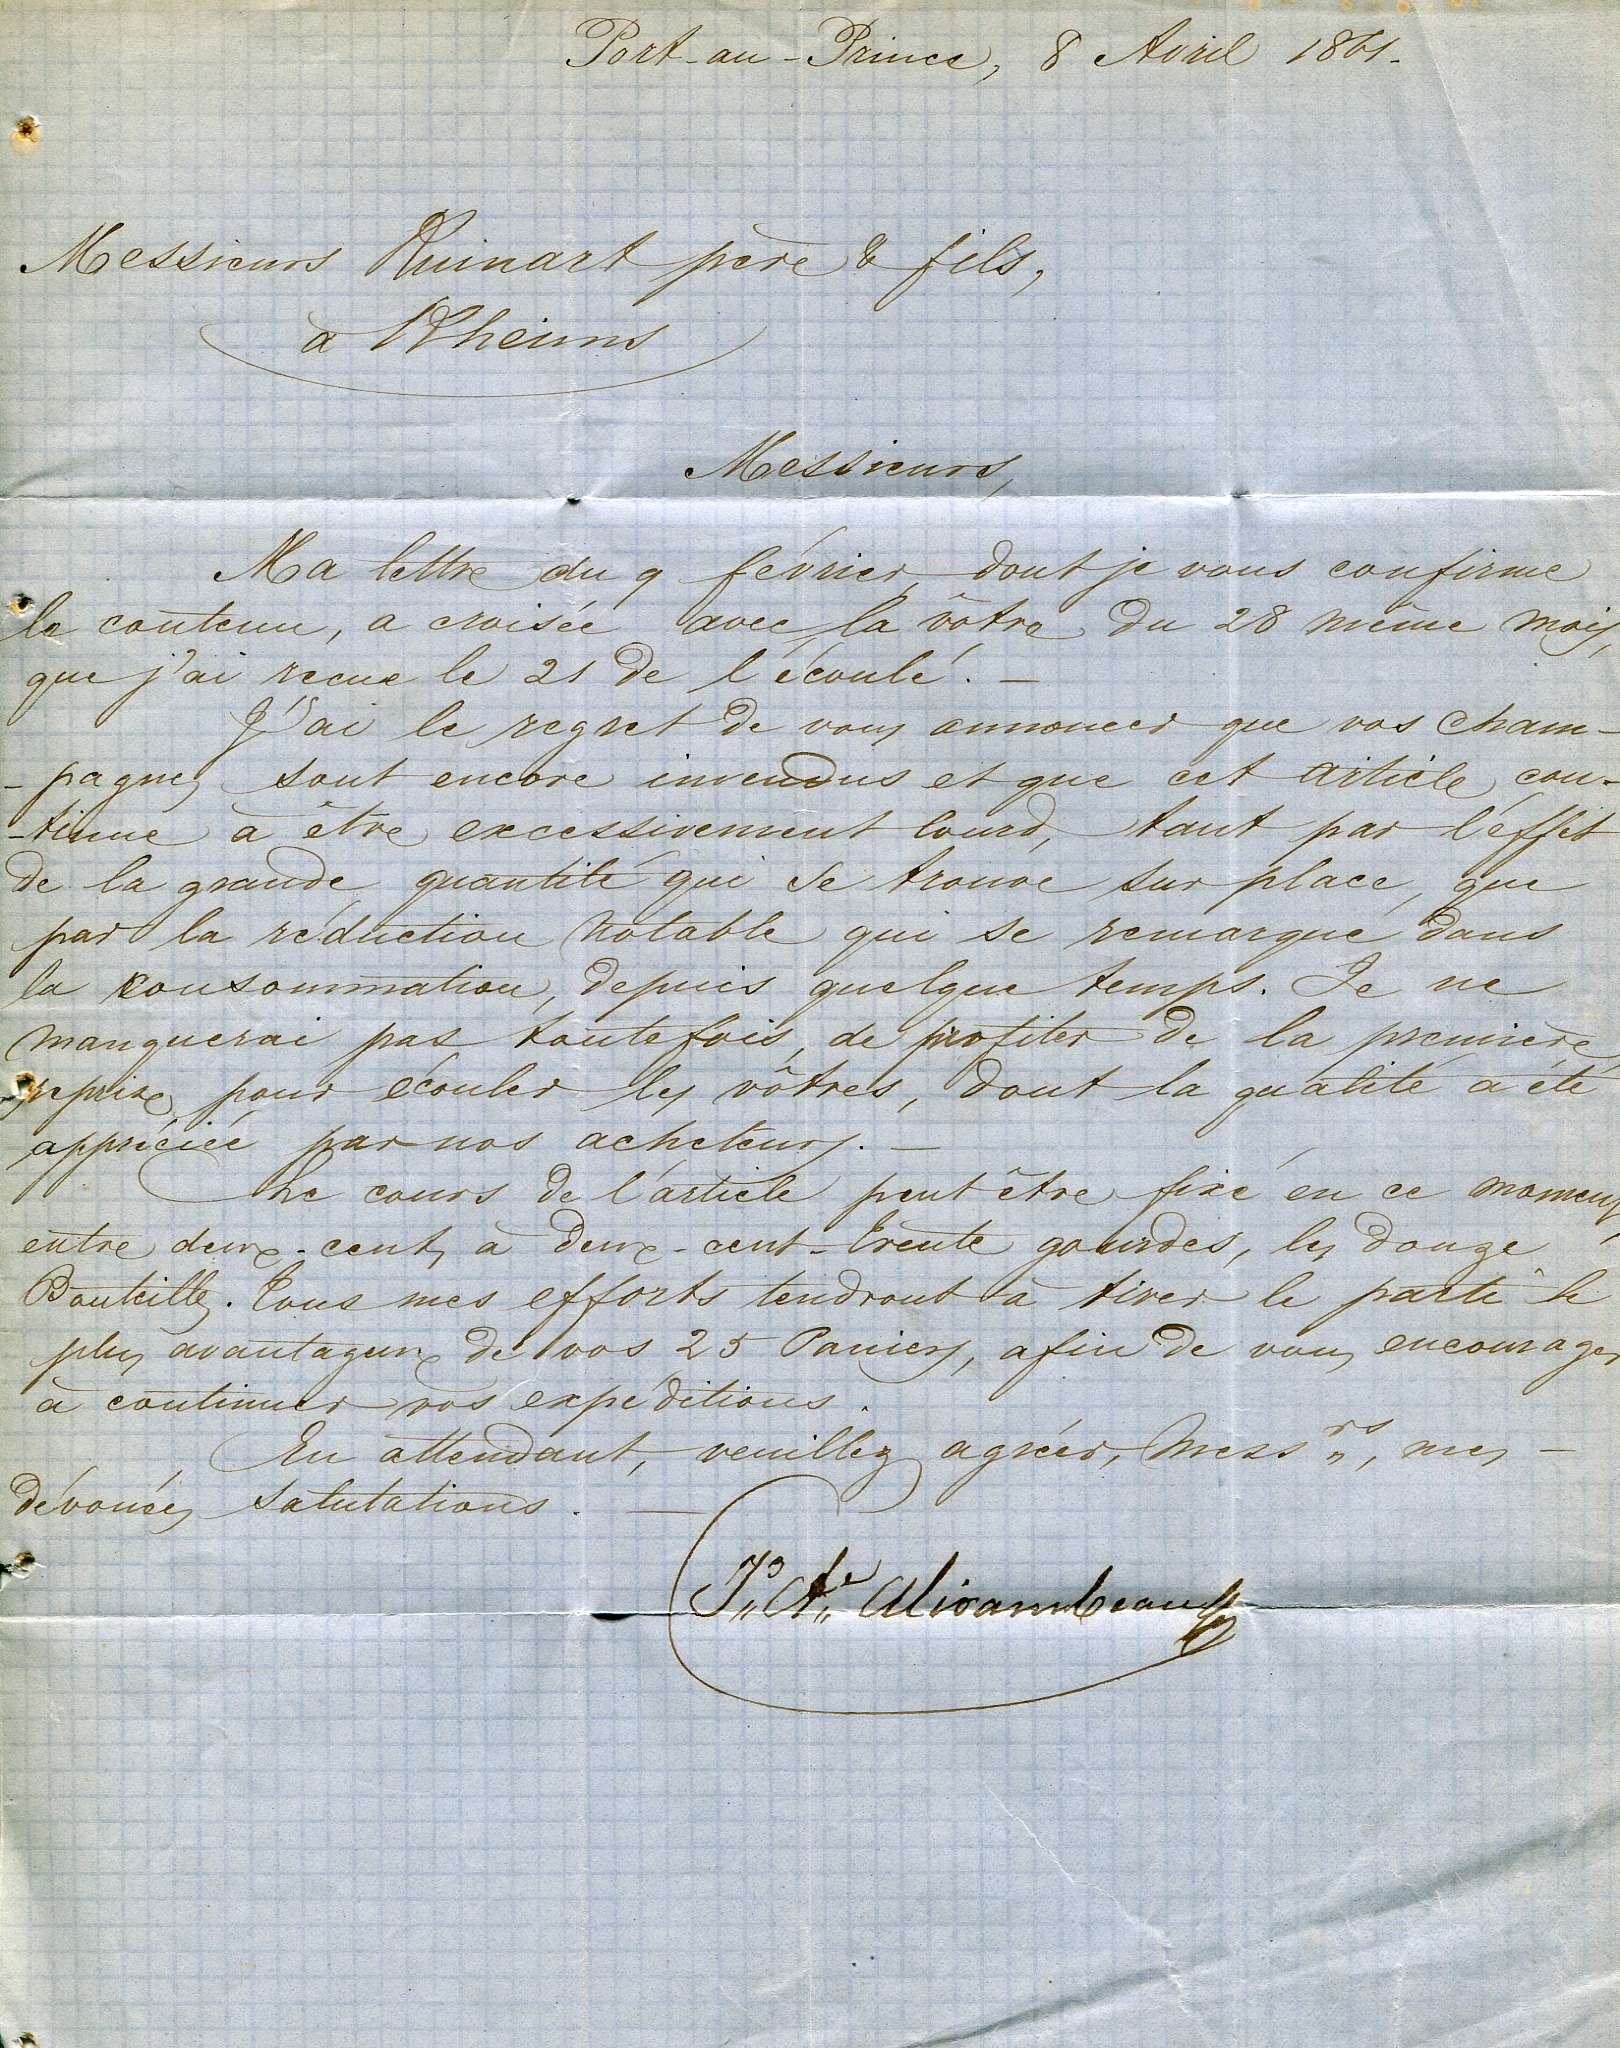 Port-au-Prince, 8 Avril 1861.
Messieurs Ruinart père & fils,
à Rheims
Messieurs,
Ma lettre du 9 février, dont je vous confirme
le contenu, a croisée avec la vôtre du 28 même mois,
que j'ai recue le 21 de l'écoulé. —
J'ai le regret de vous annoncer que vos Cham-
-pagnes sont encore invendus et que cet article con-
-tinue à être excessivement lourd, tant par l'effet
de la grande quantité qui se trouve sur place, que
par la réduction notable qui se remarque dans
la consommation, depuis quelque temps. Je ne
manquerai pas toutefois, de profiter de la première
reprise, pour écouler les vôtres, dont la qualité a été
appréciée par nos acheteurs. —
Le cours de l'article peut être fixé en ce moment,
entre deux-cents à deux-cent-trente gourdes, les douze
Bouteilles. Tous mes efforts tendront à tirer le parti le
plus avantageux de vos 25 Paniers, afin de vous encourager
à continuer vos expéditions.
En attendant, veuillez agréer, Messrs, mes —
dévouées salutations. —
Je. Ate. Mirambeau